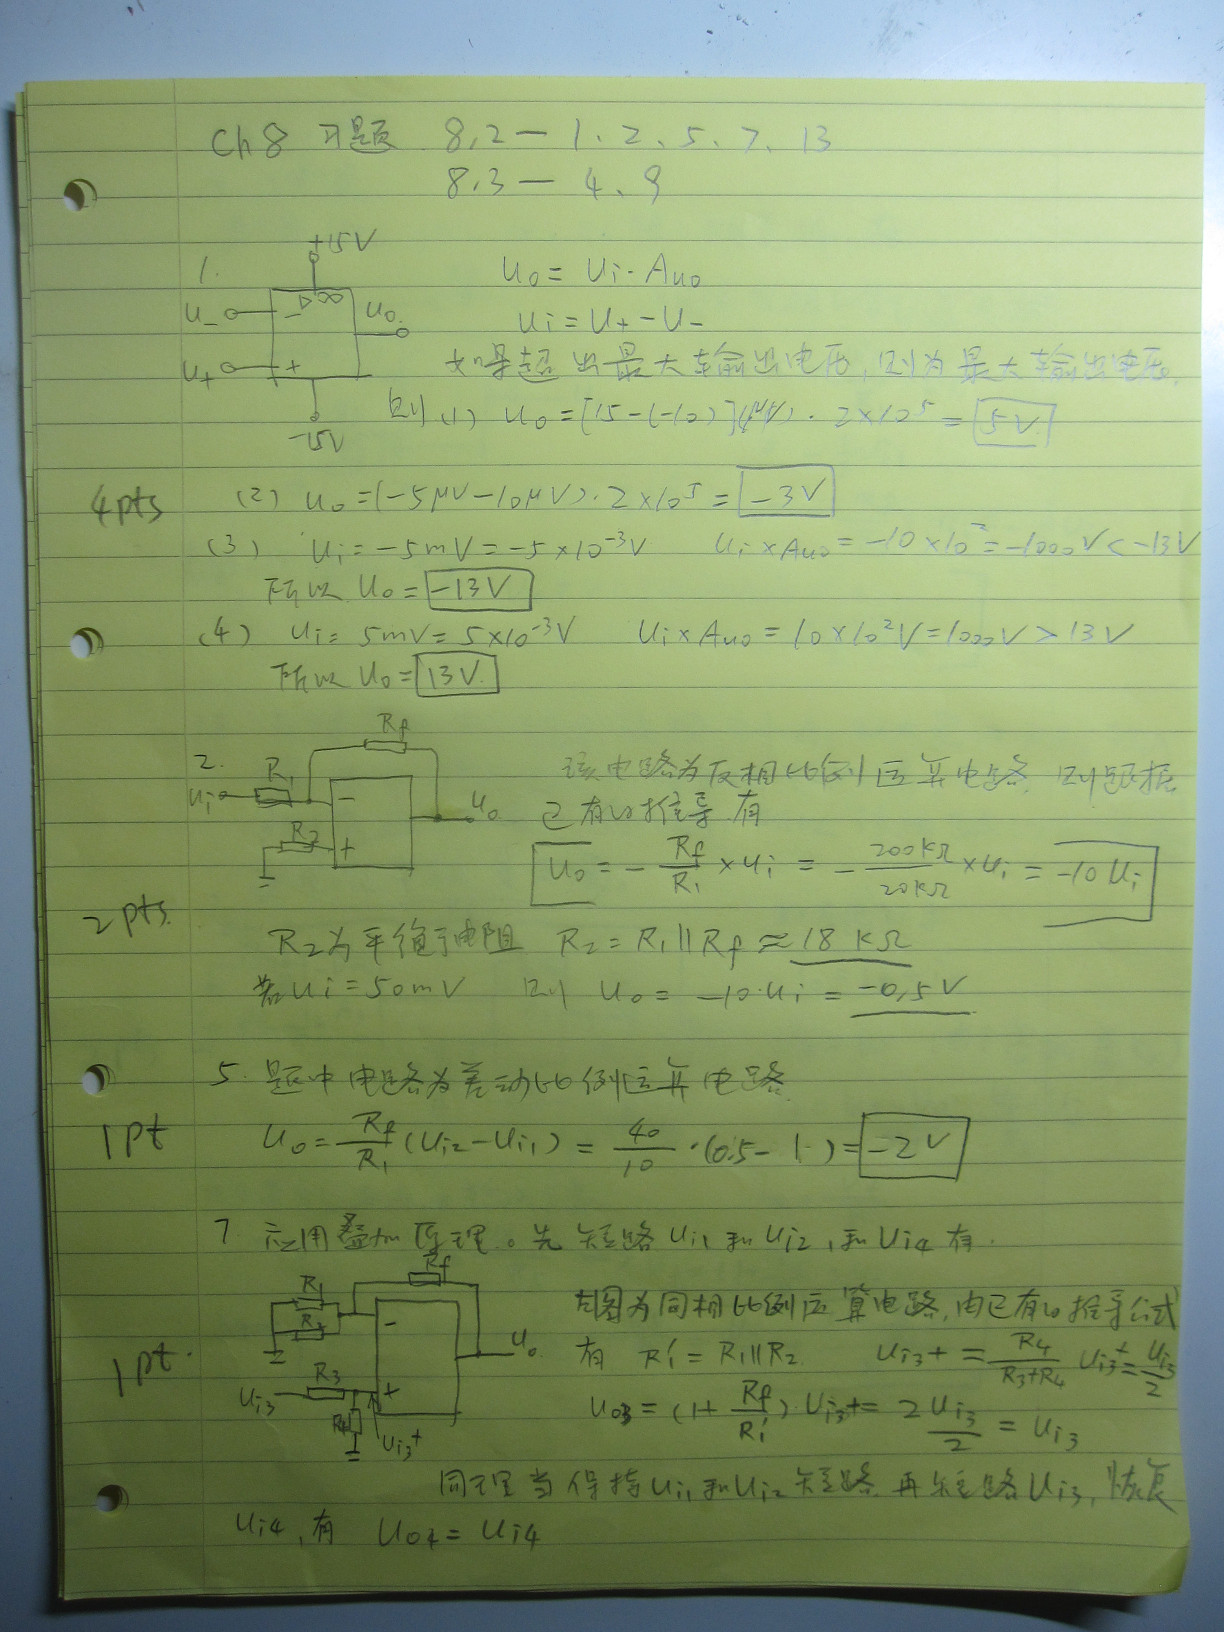 Ch8 习题 8.2 — 1、2、5、7、13
8.3 — 4、9
1.
+15V
U₋ − ▷∞ Uo
U₊ +
-15V
Uo = Ui · Auo
Ui = U₊ − U₋
如果超出最大输出电压,则为最大输出电压.
则 (1) Uo = [15-(-10)](μV) · 2×10⁵ = 5V
4pts
(2) Uo = (-5μV-10μV) · 2×10⁵ = -3V
(3) Ui = -5mV = -5×10⁻³V Ui×Auo = -10×10² = -1000V < -13V
所以 Uo = -13V
(4) Ui = 5mV = 5×10⁻³V Ui×Auo = 10×10²V = 1000V > 13V
所以 Uo = 13V.
2.
Rf
R₁
Ui − Uo
R₂ +
该电路为反相比例运算电路, 则根据
已有的推导有
Uo = - Rf/R₁ × Ui = - 200KΩ/20KΩ × Ui = -10Ui
2pts.
R₂为平衡电阻 R₂ = R₁∥Rf ≈ 18KΩ
若Ui = 50mV 则 Uo = -10·Ui = -0.5V
5. 题中电路为差动比例运算电路
1pt
Uo = Rf/R₁ (Ui2-Ui1) = 40/10 · (0.5-1) = -2V
7 应用叠加原理。先短路Ui1和Ui2,和Ui4有.
Rf
R₁
R₂ − Uo
R₃ +
Ui3
R4 Ui3⁺
左图为同相比例运算电路,由已有的推导公式
1pt.
有 R₁' = R₁∥R₂ Ui3+ = R4/(R3+R4) Ui3⁺ = Ui3/2
Uo3 = (1+ Rf/R₁') · Ui3+ = 2 Ui3/2 = Ui3
同理当保持Ui1和Ui2短路再短路Ui3,恢复
Ui4,有 Uo4 = Ui4